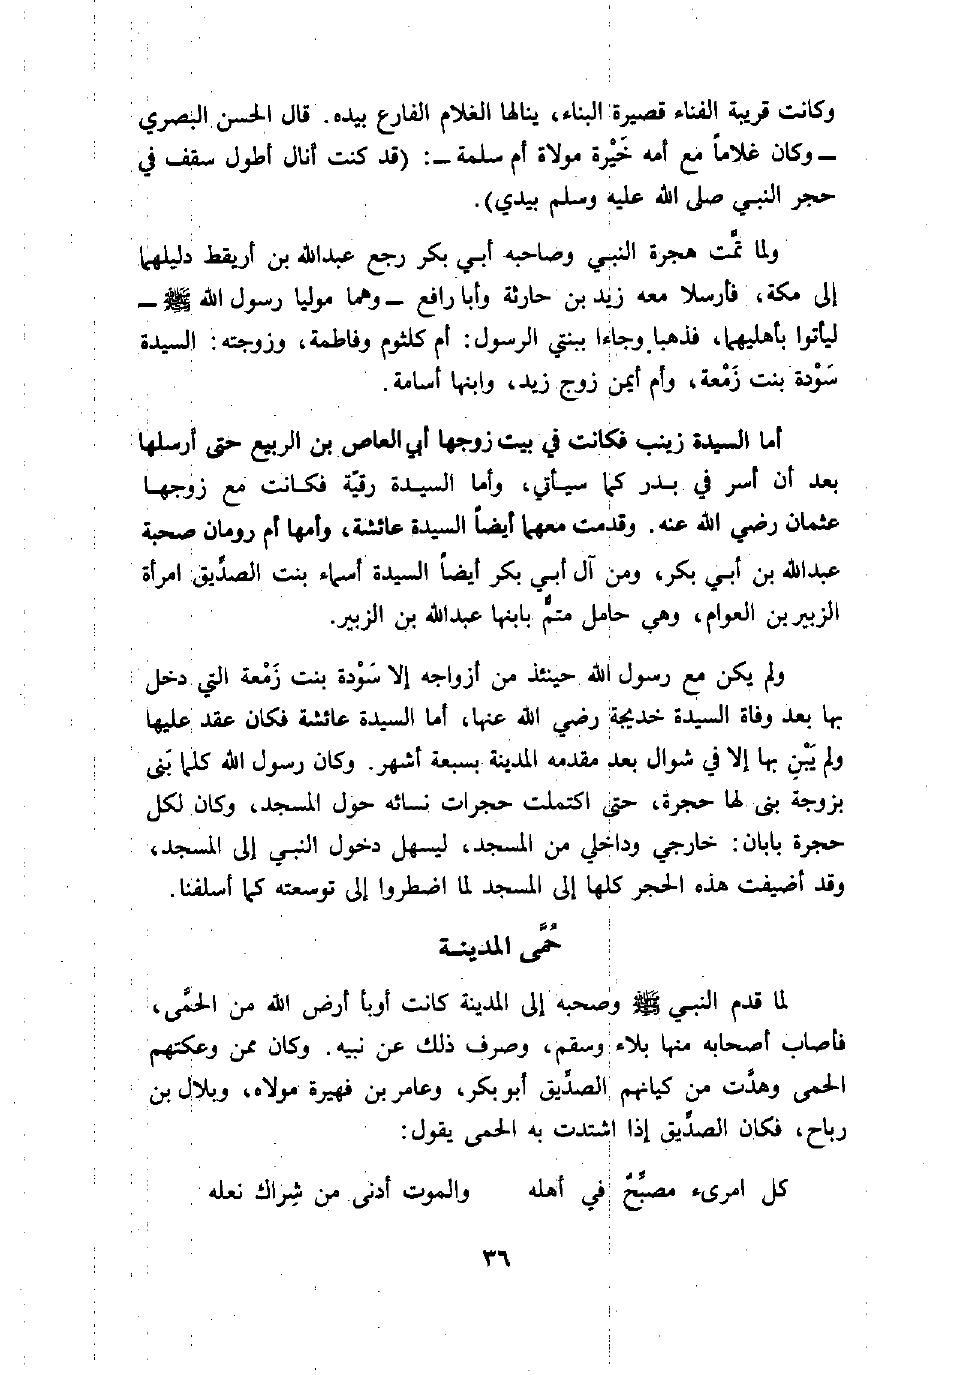 وكانت قريبة الفناء قصيرة البناء، ينالها الغلام الفارع بيده. قال الحسن البصري
ــ وكان غلاماً مع أمه خَيْرة مولاة أم سلمة ــ: (قد كنت أنال أطول سقف في
حجر النبي صلى الله عليه وسلم بيدي).
ولما تمَّت هجرة النبي وصاحبه أبي بكر رجع عبدالله بن أريقط دليلهما
إلى مكة، فأرسلا معه زيد بن حارثة وأبا رافع ــ وهما موليا رسول الله ﷺ ــ
ليأتوا بأهليهما، فذهبا وجاءا ببنتي الرسول: أم كلثوم وفاطمة، وزوجته: السيدة
سَوْدة بنت زَمْعة، وأم أيمن زوج زيد، وابنها أسامة.
أما السيدة زينب فكانت في بيت زوجها أبي العاص بن الربيع حتى أرسلها
بعد أن أسر في بدر كما سيأتي، وأما السيدة رقيّة فكانت مع زوجها
عثمان رضي الله عنه. وقدمت معهما أيضاً السيدة عائشة، وأمها أم رومان صحبة
عبدالله بن أبي بكر، ومن آل أبي بكر أيضاً السيدة أسماء بنت الصدِّيق امرأة
الزبير بن العوام، وهي حامل متمٌّ بابنها عبدالله بن الزبير.
ولم يكن مع رسول الله حينئذ من أزواجه إلا سَوْدة بنت زَمْعة التي دخل
بها بعد وفاة السيدة خديجة رضي الله عنها، أما السيدة عائشة فكان عقد عليها
ولم يَبْنِ بها إلا في شوال بعد مقدمه المدينة بسبعة أشهر. وكان رسول الله كلما بَنى
بزوجة بنى لها حجرة، حتى اكتملت حجرات نسائه حول المسجد، وكان لكل
حجرة بابان: خارجي وداخلي من المسجد، ليسهل دخول النبي إلى المسجد،
وقد أضيفت هذه الحجر كلها إلى المسجد لما اضطروا إلى توسعته كما أسلفنا.
حُمَّى المدينة
لما قدم النبي ﷺ وصحبه إلى المدينة كانت أوبأ أرض الله من الحمَّى،
فأصاب أصحابه منها بلاء وسقم، وصرف ذلك عن نبيه. وكان ممن وعكتهم
الحمى وهدَّت من كيانهم الصدِّيق أبو بكر، وعامر بن فهيرة مولاه، وبلال بن
رباح، فكان الصدِّيق إذا اشتدت به الحمى يقول:
كل امرىء مصبَّحٌ في أهله والموت أدنى من شِراك نعله
٣٦